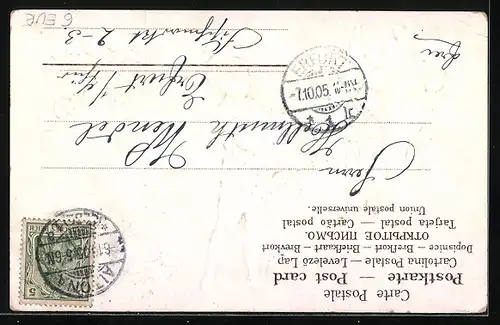 Carte Postale
Postkarte — Post card
Cartolina Postale — Levelező Lap
Dopisnice — Brefkort — Briefkaart — Brevkort
ОТКРЫТОЕ ПИСЬМО.
Tarjeta postal — Cartão postal
Union postale universelle.
Herrn
Hellmuth Wendel
Erfurt
2-3.
frei
ERFURT
7.10.05.
ALTONA
5
6 EUR